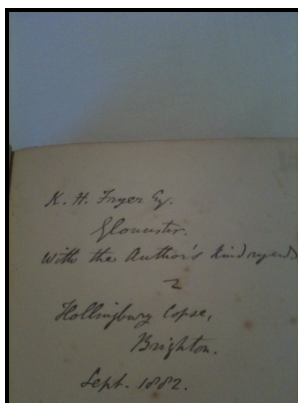 K. H. Fryer Esq.
Gloucester.
With the Author's kind regards
Hollingbury Copse,
Brighton.
Sept. 1882.